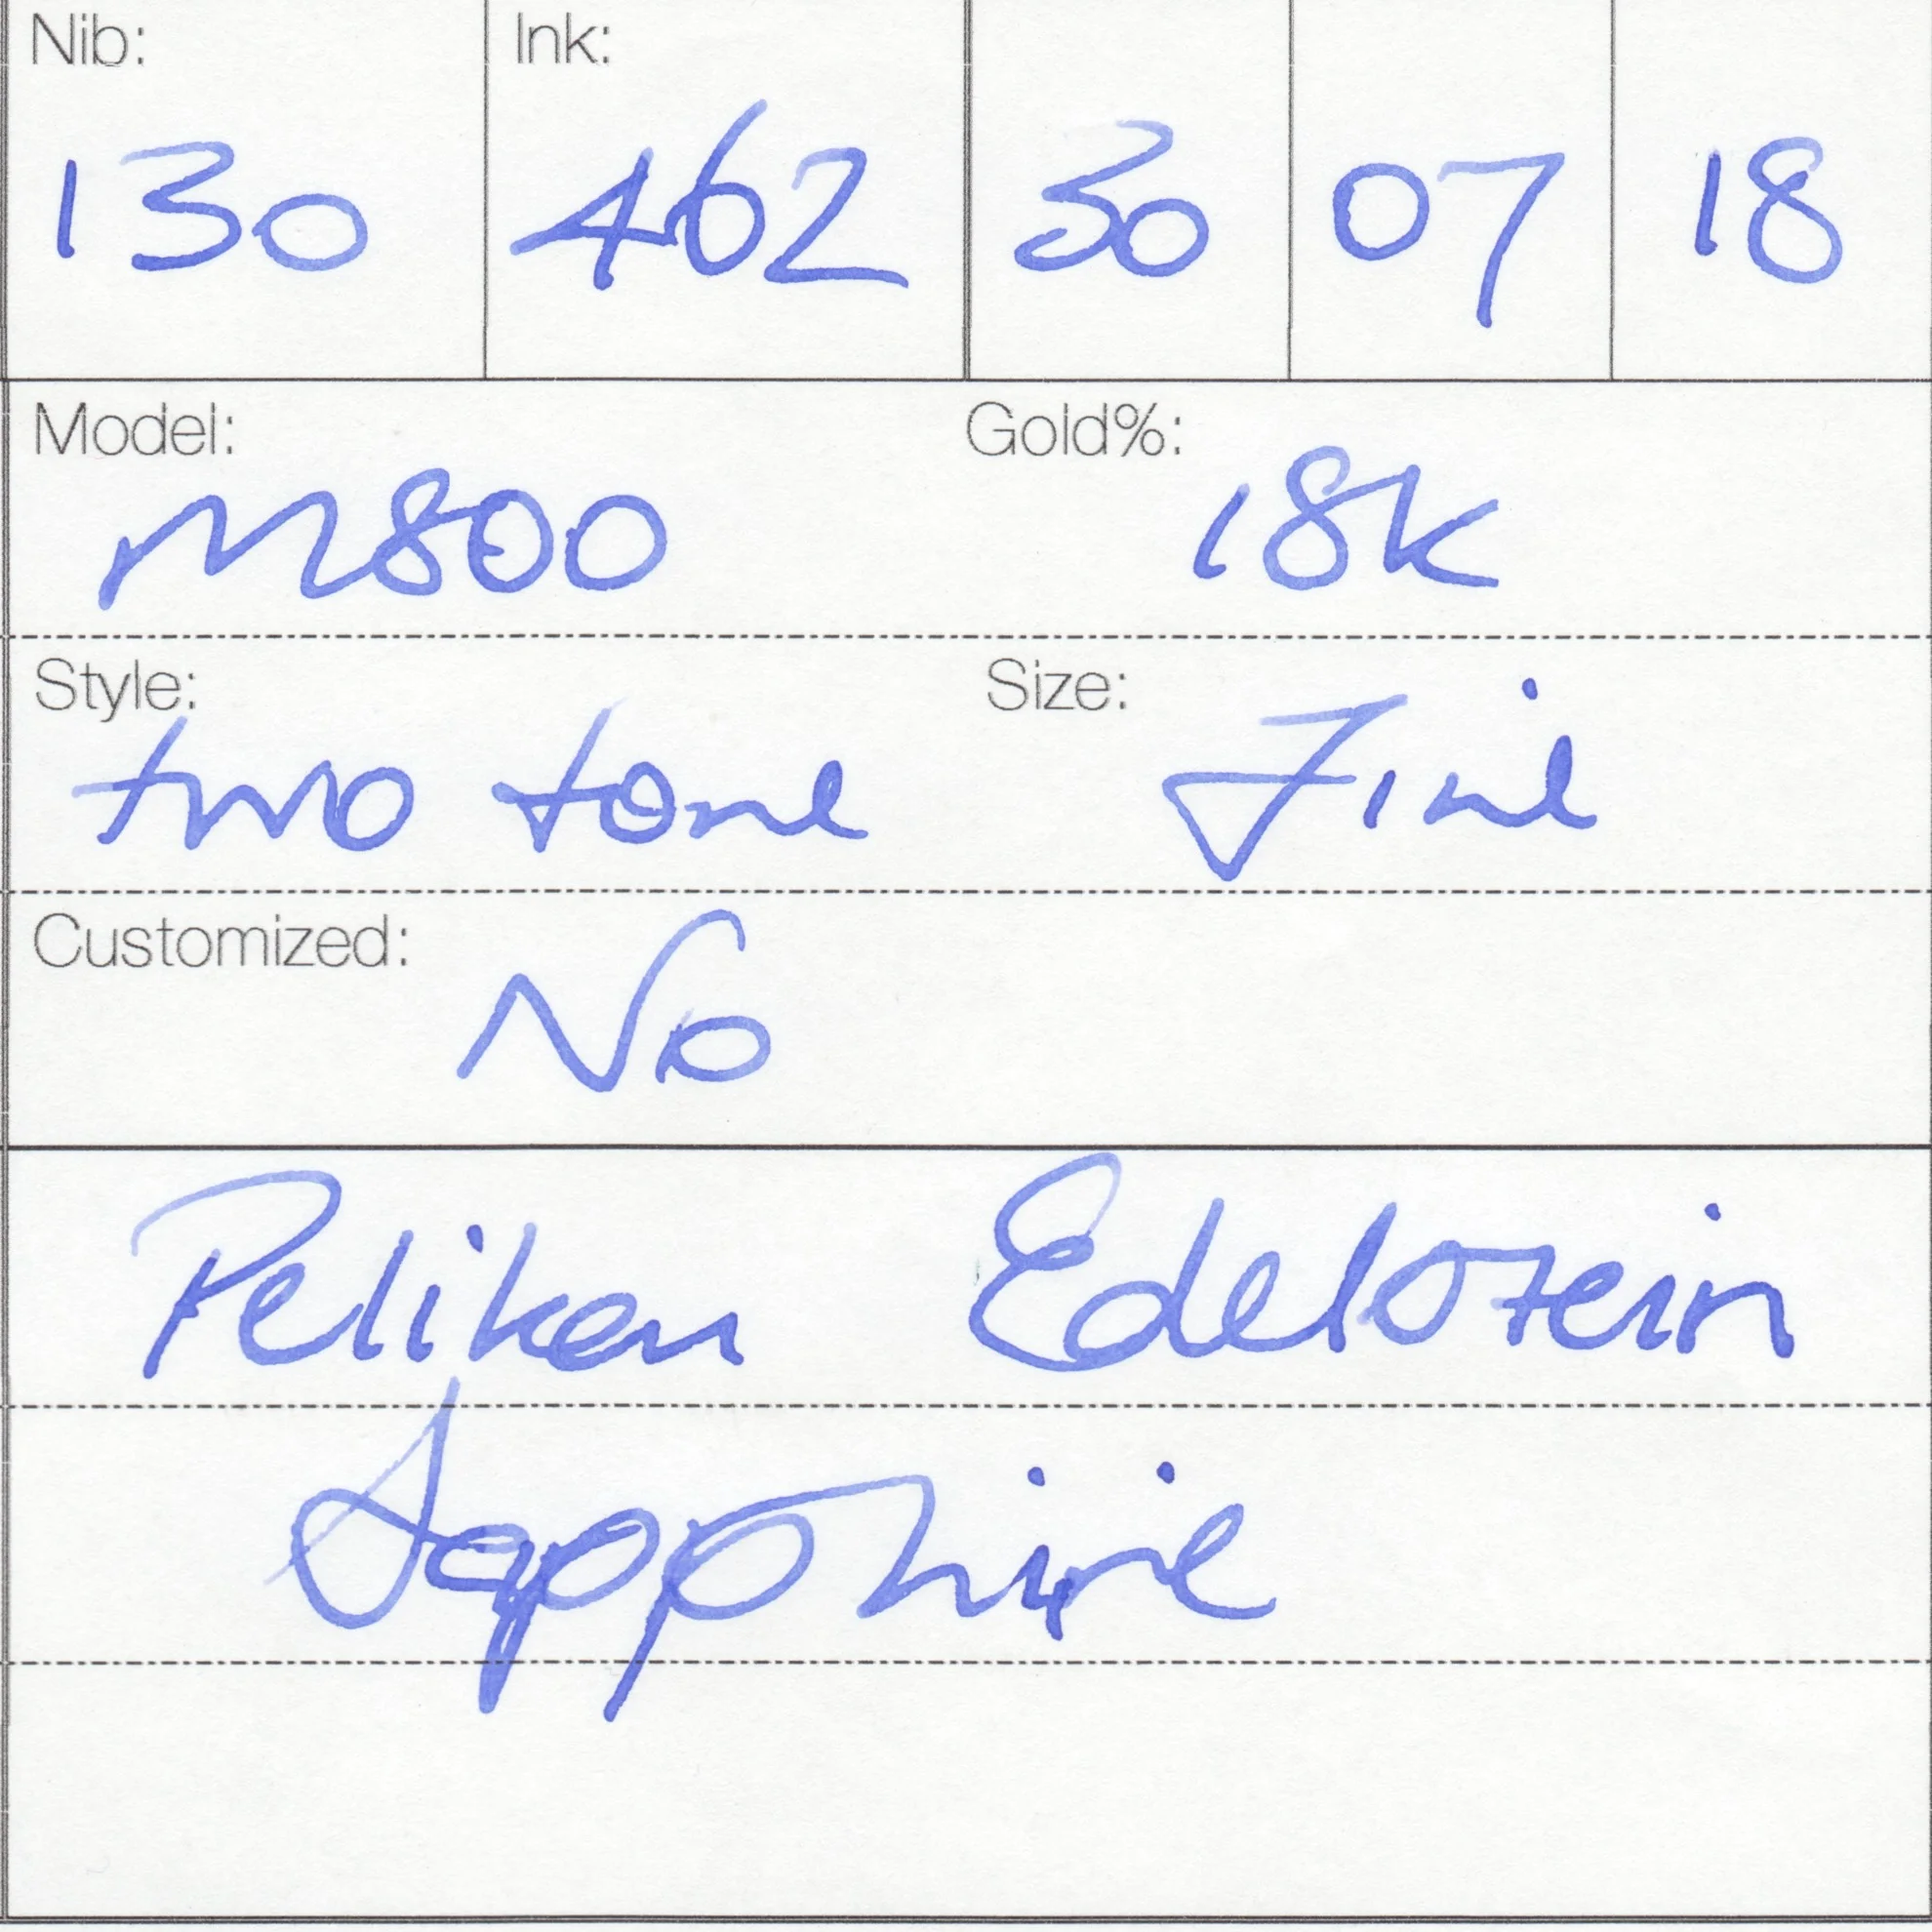 Nib: Ink:
130 462 30 07 18
Model: Gold%:
M800 18K
Style: Size:
two tone Fine
Customized:
No
Pelikan Edelstein
Sapphire